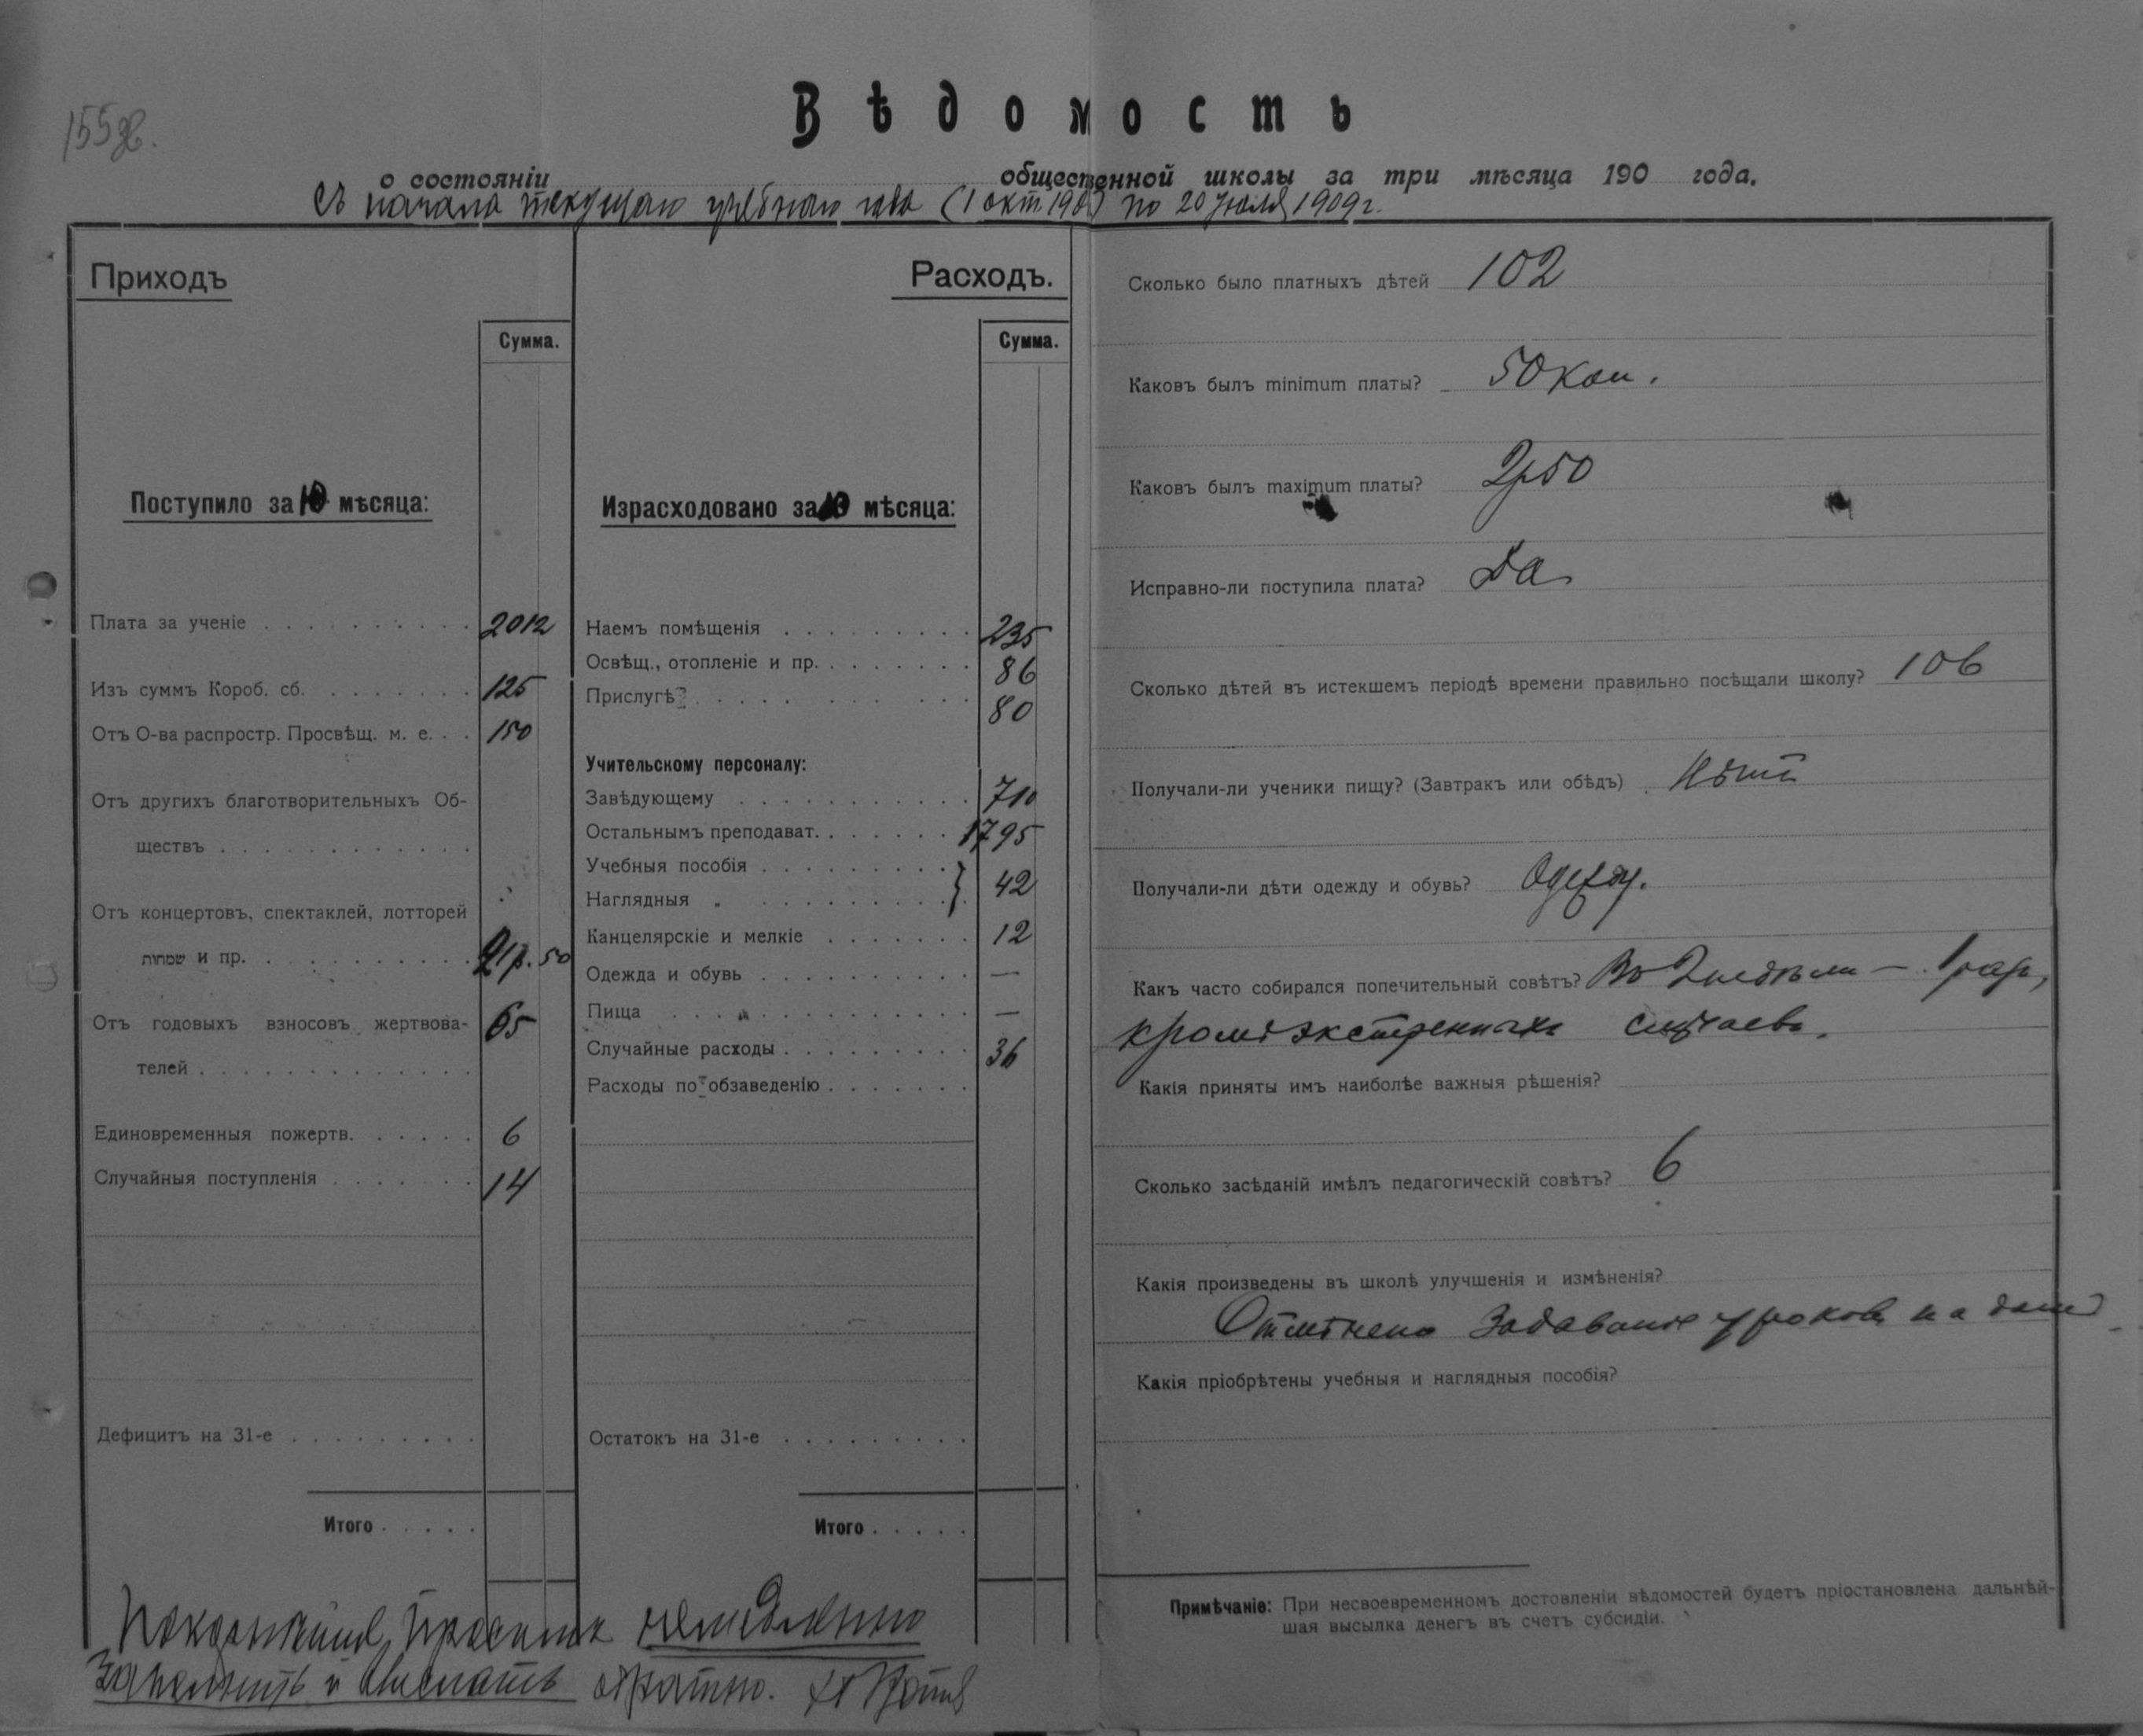 155
Вѣдомость
о состояніи общественной школы за три мѣсяца 190 года.
Съ начала текущаго учебнаго года (1 окт. 190 ) по 20 Іюля 1909 г.
Приходъ
Сумма.
Поступило за 10 мѣсяца:
Плата за ученіе . . . . . . . . . . 2012
Изъ суммъ Короб. сб. . . . . . . . 125
Отъ О-ва распростр. Просвѣщ. м. е. . . 150
Отъ другихъ благотворительныхъ Об-
ществъ . . . . . . . . . . . .
Отъ концертовъ, спектаклей, лотторей
שמחות и пр. . . . . . . . . . . 21 р. 50
Отъ годовыхъ взносовъ жертвова- 65
телей . . . . . . . . . . . . .
Единовременныя пожертв. . . . . . 6
Случайныя поступленія . . . . . . . 14
Дефицитъ на 31-е . . . . . . . . .
Итого . . . . .
Расходъ.
Сумма.
Израсходовано за 10 мѣсяца:
Наемъ помѣщенія . . . . . . . . . 235
Освѣщ., отопленіе и пр. . . . . . . . 86
Прислугѣ . . . . . . . . . . 80
Учительскому персоналу:
Завѣдующему . . . . . . . . . . . 710
Остальнымъ преподават. . . . . . . 1795
Учебныя пособія . . . . . . . . .
Наглядныя „ . . . . . . . . . . } 42
Канцелярскіе и мелкіе . . . . . . . 12
Одежда и обувь . . . . . . . . . . —
Пища . . . . . . . . . . . . . —
Случайные расходы . . . . . . . . . 36
Расходы по обзаведенію . . . . . . .
Остатокъ на 31-е . . . . . . . . .
Итого . . . . .
Сколько было платныхъ дѣтей 102
Каковъ былъ minimum платы? 50 коп.
Каковъ былъ maximum платы? 2р50
Исправно-ли поступила плата? Да
Сколько дѣтей въ истекшемъ періодѣ времени правильно посѣщали школу? 106
Получали-ли ученики пищу? (Завтракъ или обѣдъ) Нѣтъ
Получали-ли дѣти одежду и обувь? Одежду.
Какъ часто собирался попечительный совѣтъ? Въ 2 недѣли — 1 разъ,
кромѣ экстренныхъ случаевъ.
Какія приняты имъ наиболѣе важныя рѣшенія?
Сколько засѣданій имѣлъ педагогическій совѣтъ? 6
Какія произведены въ школѣ улучшенія и измѣненія?
Отмѣнено задаваніе уроковъ на домъ
Какія пріобрѣтены учебныя и наглядныя пособія?
Примѣчаніе: При несвоевременномъ достовленіи вѣдомостей будетъ пріостановлена дальнѣй-
шая высылка денегъ въ счетъ субсидіи.
Покорнѣйше просимъ немедленно
заполнить и выслать обратно.